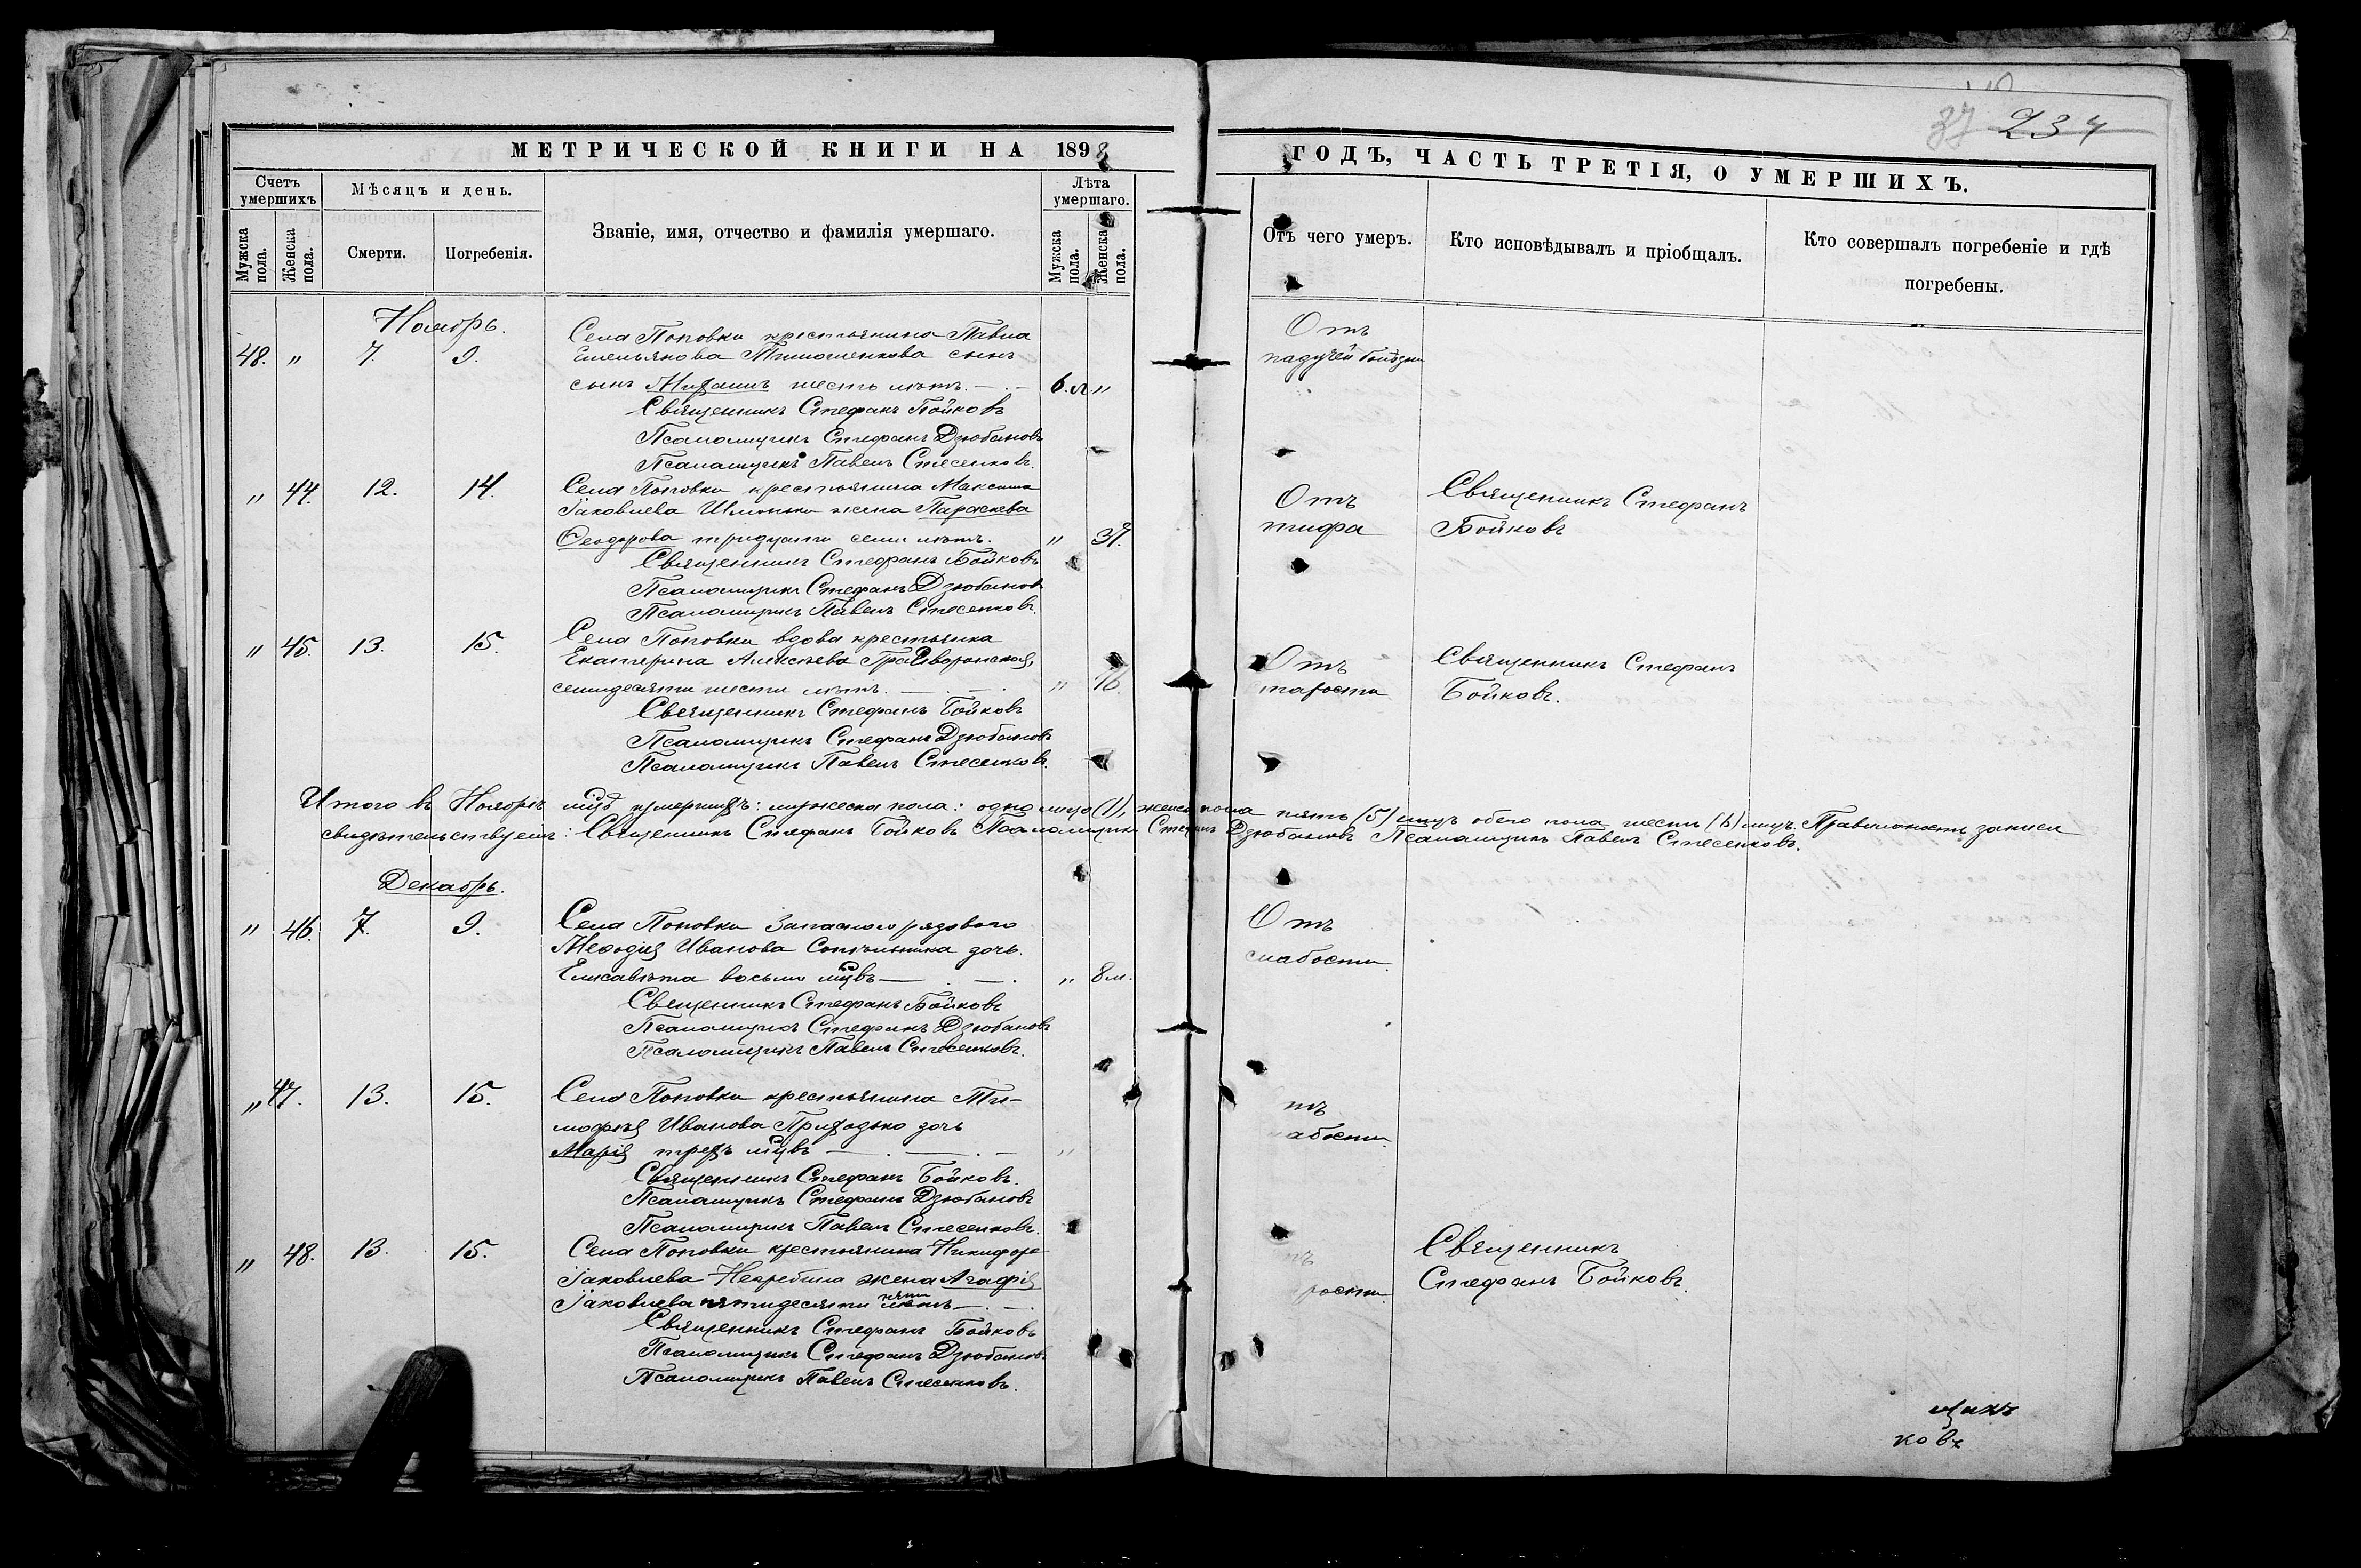 37 234
МЕТРИЧЕСКОЙ КНИГИ НА 1898 ГОДЪ, ЧАСТЬ ТРЕТІЯ, О УМЕРШИХЪ.
Счетъ умершихъ
Мѣсяцъ и день.
Званіе, имя, отчество и фамилія умершаго.
Лѣта умершаго.
Отъ чего умеръ.
Кто исповѣдывалъ и пріобщалъ.
Кто совершалъ погребеніе и гдѣ
погребены.
Мужска пола.
Женска пола.
Смерти.
Погребенія.
Мужска пола.
Женска пола.
Ноябрь.
Села Поповки крестьянина Павла
Отъ
48. " 7. 9. Емельянова Тимошенкова сынъ
падучей болѣзни
сынъ шесть лѣтъ. 6.л. "
Священникъ Стефанъ Бойковъ
Псаломщикъ Стефанъ Дзюбановъ
Псаломщикъ Павелъ Стесенковъ.
" 44. 12. 14. Села Поповки крестьянина Максима
Отъ Священникъ Стефанъ
Іаковлева жена Параскева
тифа Бойковъ
Ѳеодорова тридцати семи лѣтъ. " 37.
Священникъ Стефанъ Бойковъ
Псаломщикъ Стефанъ Дзюбановъ
Псаломщикъ Павелъ Стесенковъ.
" 45. 13. 15. Села Поповки вдова крестьянка
Отъ Священникъ Стефанъ
Екатерина Алексѣева Грайворонская,
старости Бойковъ.
семидесяти шести лѣтъ. " 76.
Священникъ Стефанъ Бойковъ
Псаломщикъ Стефанъ Дзюбановъ
Псаломщикъ Павелъ Стесенковъ.
Итого въ Ноябрѣ м-цѣ умершихъ: мужеска пола: одно лицо (1), женска пола пять (5) лицъ обего пола шесть (6) лицъ. Правильность записи
свидѣтельствуемъ: Священникъ Стефанъ Бойковъ Псаломщикъ Стефанъ Дзюбановъ Псаломщикъ Павелъ Стесенковъ.
Декабрь.
" 46. 7. 9. Села Поповки Запаснаго рядового
Отъ
Меѳодія Иванова дочь
слабости.
Елисавета восьми м-цевъ " 8 м.
Священникъ Стефанъ Бойковъ
Псаломщикъ Стефанъ Дзюбановъ
Псаломщикъ Павелъ Стесенковъ.
" 47. 13. 15. Села Поповки крестьянина Ти-
тъ
мофея Иванова Приходько дочь
абости.
Марія трехъ м-цевъ "
Священникъ Стефанъ Бойковъ.
Псаломщикъ Стефанъ Дзюбановъ
Псаломщикъ Павелъ Стесенковъ.
" 48. 13. 15. Села Поповки крестьянина Никифора
тъ Священникъ
Іаковлева жена Агафія
рости. Стефанъ Бойковъ.
Іаковлева пятидесяти пяти лѣтъ
Священникъ Стефанъ Бойковъ
Псаломщикъ Стефанъ Дзюбановъ
Псаломщикъ Павелъ Стесенковъ.
щикъ
ковъ